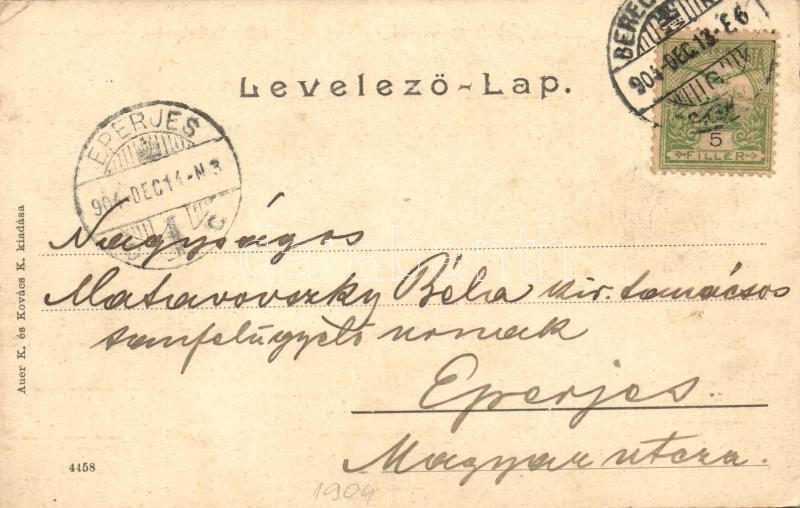 Levelező-Lap.
904 DEC 13 E6
5
FILLÉR
EPERJES
904 DEC 14 N 3
Nagyságos
Matavovszky Béla kir. tanácsos
tanfelügyelő urnak
Eperjes.
Magyar utcza.
Auer K. és Kovács K. kiadása
4458
1904